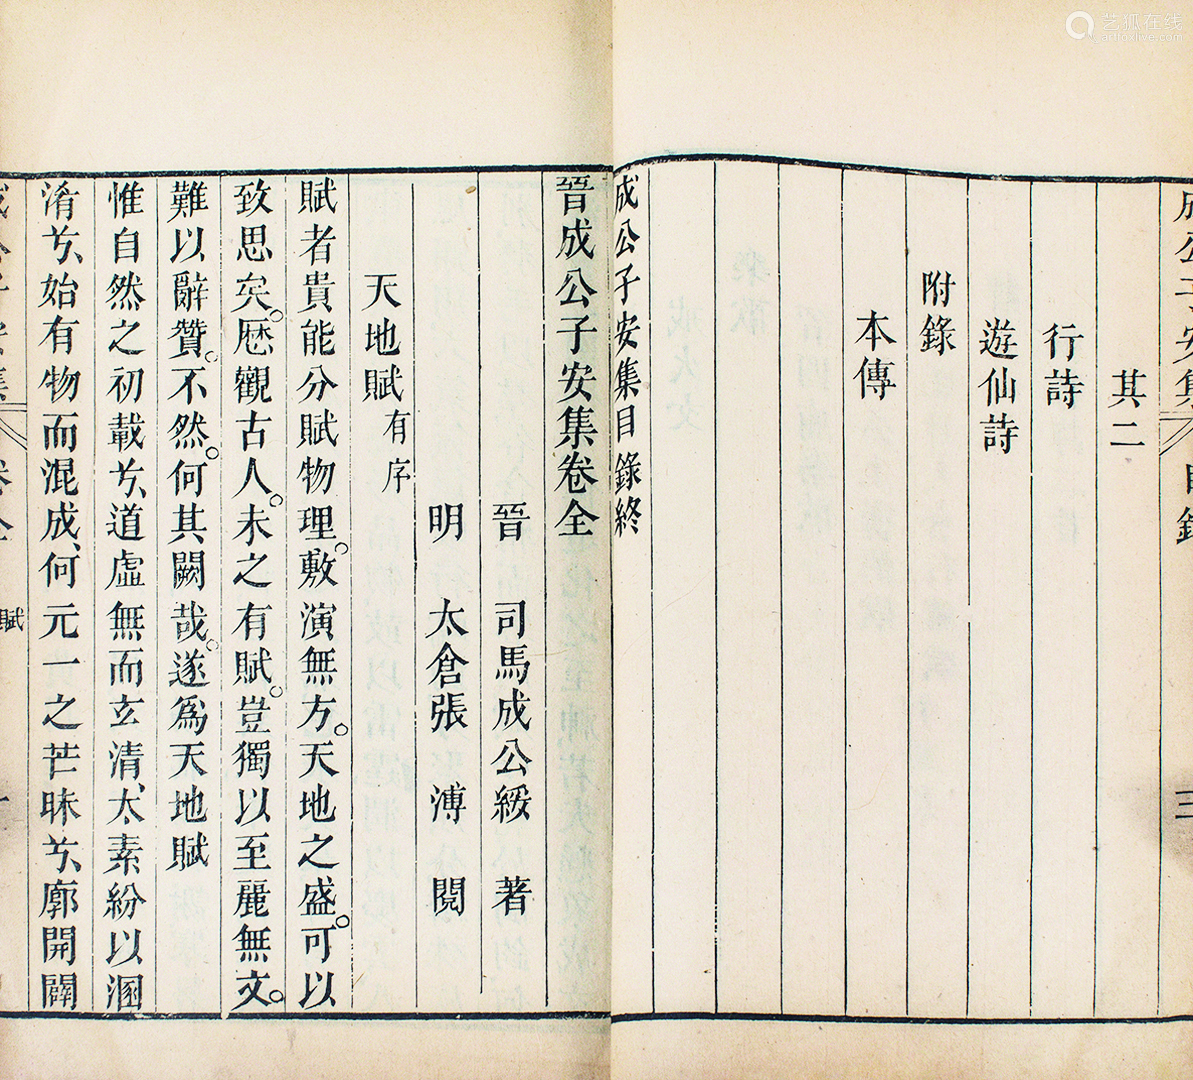 艺狐在线
artfoxlive.com
成公子安集 目錄 三
其二
行詩
遊仙詩
附錄
本傳
成公子安集目錄終
晉成公子安集卷全
晉 司馬成公綏 著
明 太倉張 溥 閱
天地賦有序
賦者貴能分賦物理。敷演無方。天地之盛。可以
致思矣。歷觀古人。未之有賦。豈獨以至麗無文。
難以辭贊。不然。何其闕哉。遂爲天地賦
惟自然之初載兮、道虛無而玄清、太素紛以溷
淆兮、始有物而混成、何元一之芒昧兮、廓開闢
成公子安集 卷全 賦 一